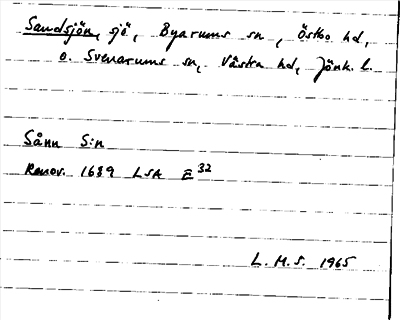 Sandsjön, sjö, Byarums sn, Östbo hd,
o. Svenarums sn, Västra hd, Jönk. l.
Sånn S:n
Renov. 1689 LSA E 32
L. M. S. 1965